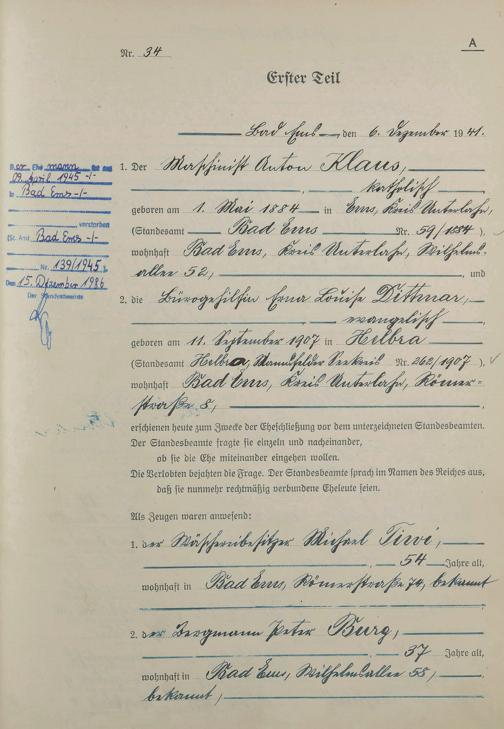 A
Nr. 34
Erster Teil
Bad Ems, den 6. Dezember 1941.
1. Der Maschinist Anton Klaus,
katholisch
geboren am 1. Mai 1884 in Ems, Kreis Unterlahn,
(Standesamt Bad Ems Nr. 59/1884),
wohnhaft Bad Ems, Kreis Unterlahn, Wilhelms-
allee 52, und
2. die Bürogehilfin Erna Louise Dittmar,
evangelisch
geboren am 11. September 1907 in Helbra
(Standesamt Helbra, Mansfelder Seekreis Nr. 262/1907),
wohnhaft Bad Ems, Kreis Unterlahn, Römer-
straße 8,
erschienen heute zum Zwecke der Eheschließung vor dem unterzeichneten Standesbeamten.
Der Standesbeamte fragte sie einzeln und nacheinander,
ob sie die Ehe miteinander eingehen wollen.
Die Verlobten bejahten die Frage. Der Standesbeamte sprach im Namen des Reiches aus,
daß sie nunmehr rechtmäßig verbundene Eheleute seien.
Als Zeugen waren anwesend:
1. der Wäschereibesitzer Michael Tiwi,
54 Jahre alt,
wohnhaft in Bad Ems, Römerstraße 74, bekannt
2. der Bergmann Peter Burg,
37 Jahre alt,
wohnhaft in Bad Ems, Wilhelmsallee 55,
bekannt,
Der Ehemann ist am
09. April 1945 -/-
in Bad Ems -/-
verstorben
(St. Amt Bad Ems -/-
Nr. 139/1945).
Den 15. Dezember 1986
Der Standesbeamte